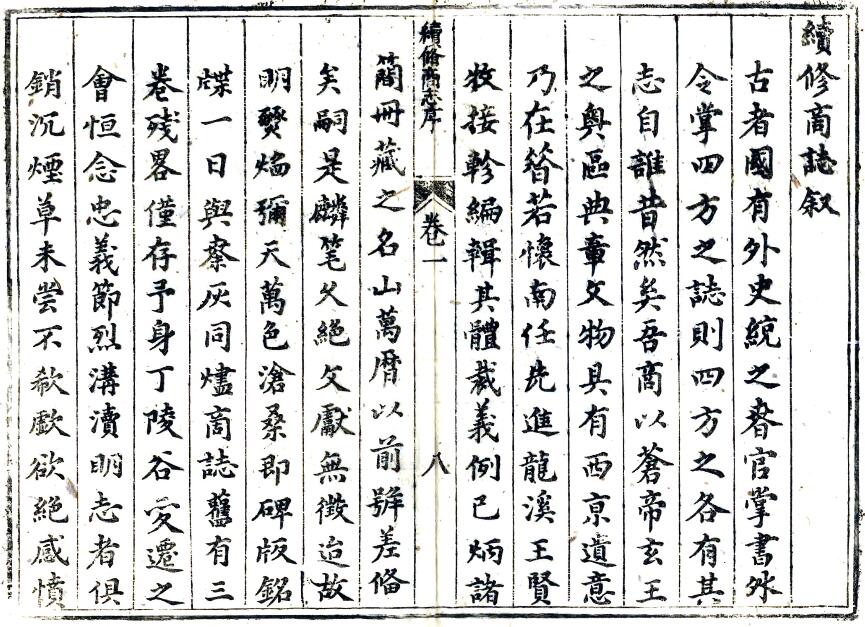 續修商誌叙
古者國有外史統之春官掌書外
令掌四方之誌則四方之各有其
志自誰昔然矣吾商以蒼帝玄王
之奧區典章文物具有西京遺意
乃在簪若懷南任先進龍溪王賢
牧接軫編輯其體裁義例已炳諸
續脩商志序
卷一
八
簡冊藏之名山萬曆以前號差俻
矣嗣是麟笔久絕文獻無徵迨故
明燹焔彌天萬色滄桑即碑版銘
牒一日與寮灰同燼商誌舊有三
卷残畧僅存予身丁陵谷変遷之
會恒念忠義節烈溝瀆明志者俱
銷沉煙草未尝不欷歔欲絕感憤